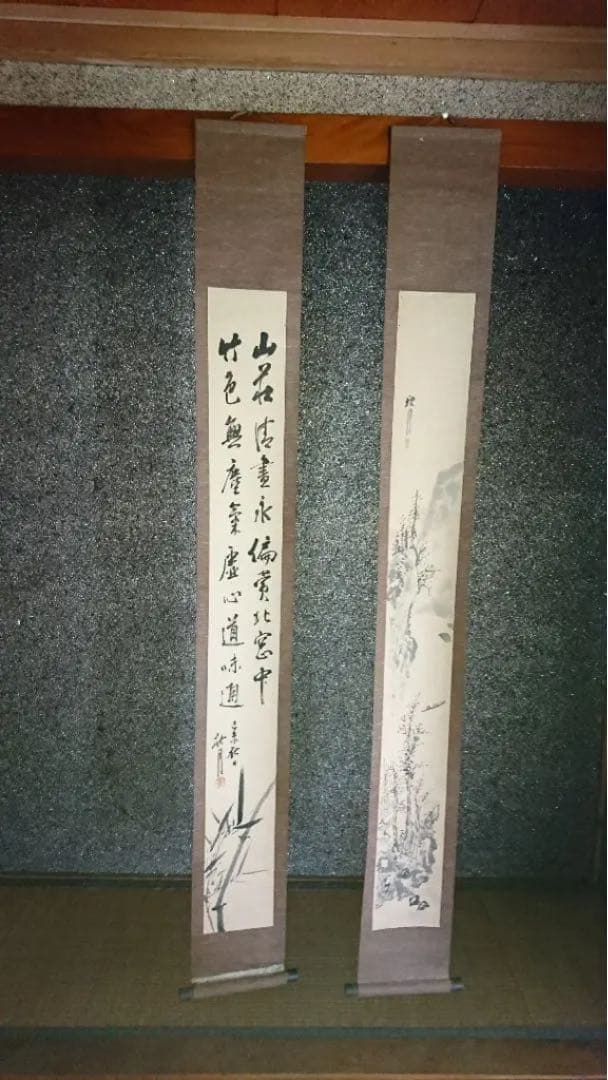 山荘清晝永偏賞北窓中
竹色無塵氣虚心道味通